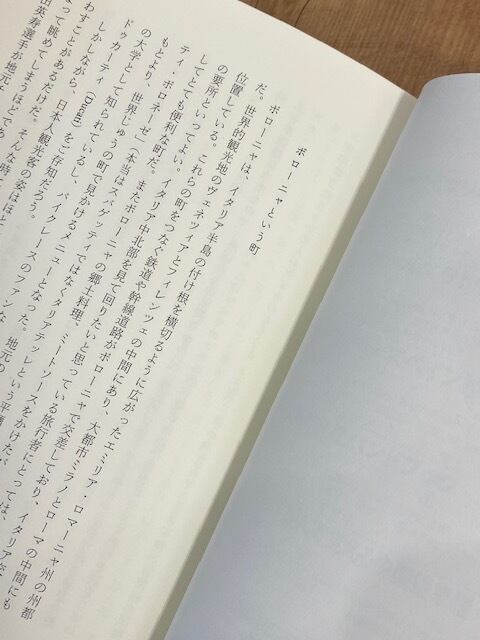 ボローニャという町
ボローニャは、イタリア半島の付け根を横切るように広がったエミリア・ロマーニャ州の州都
だ。世界的観光地のヴェネツィアとフィレンツェの中間にあり、大都市ミラノとローマの中間にも
位置している。これらの町をつなぐ鉄道や幹線道路がボローニャで交差しており、イタリア
の要所といってよい。イタリア中北部を見て回りたいと思っている旅行者にとっては、
してとても便利な町だ。またボローニャの郷土料理、ミートソースをかけた
ティ・ボロネーゼ」(本当はスパゲッティではなく、タリアテッレという平麺
もとより、世界じゅうの町で見かけるメニューとなった。地元の
の大学として知られているし、バイクレースのファンな
ドゥカーティ(Ducati)をご存知だろう。
しかしながら、日本人観光客の姿はほと
わすことがあるだけだ。そんな時
って眺めてしまうほどで
田英寿選手が地元